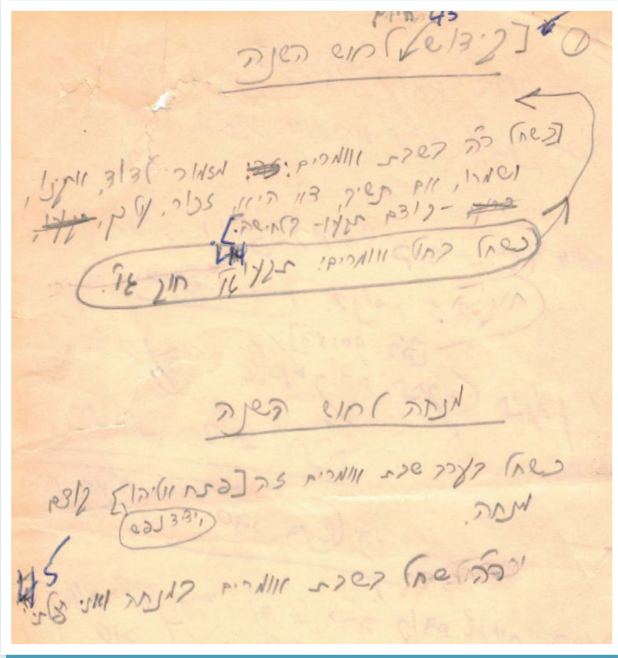 43
① [קידוש לראש השנה
[כשחל ר"ה בשבת אומרים: מזמור לדוד, אתקינו,
ושמרו, אם תשיב, דא היא, זכור, ועל כן,
קודם תקעו - בלחישה.]
44
כשחל בחול אומרים: תקעו גו' חוק גו'.
מנחה לראש השנה
כשחל בערב שבת אומרים זה [פתח אליהו] קודם
מנחה. וידיד נפש
45
ר"ה שחל בשבת אומרים במנחה ואני תפלתי